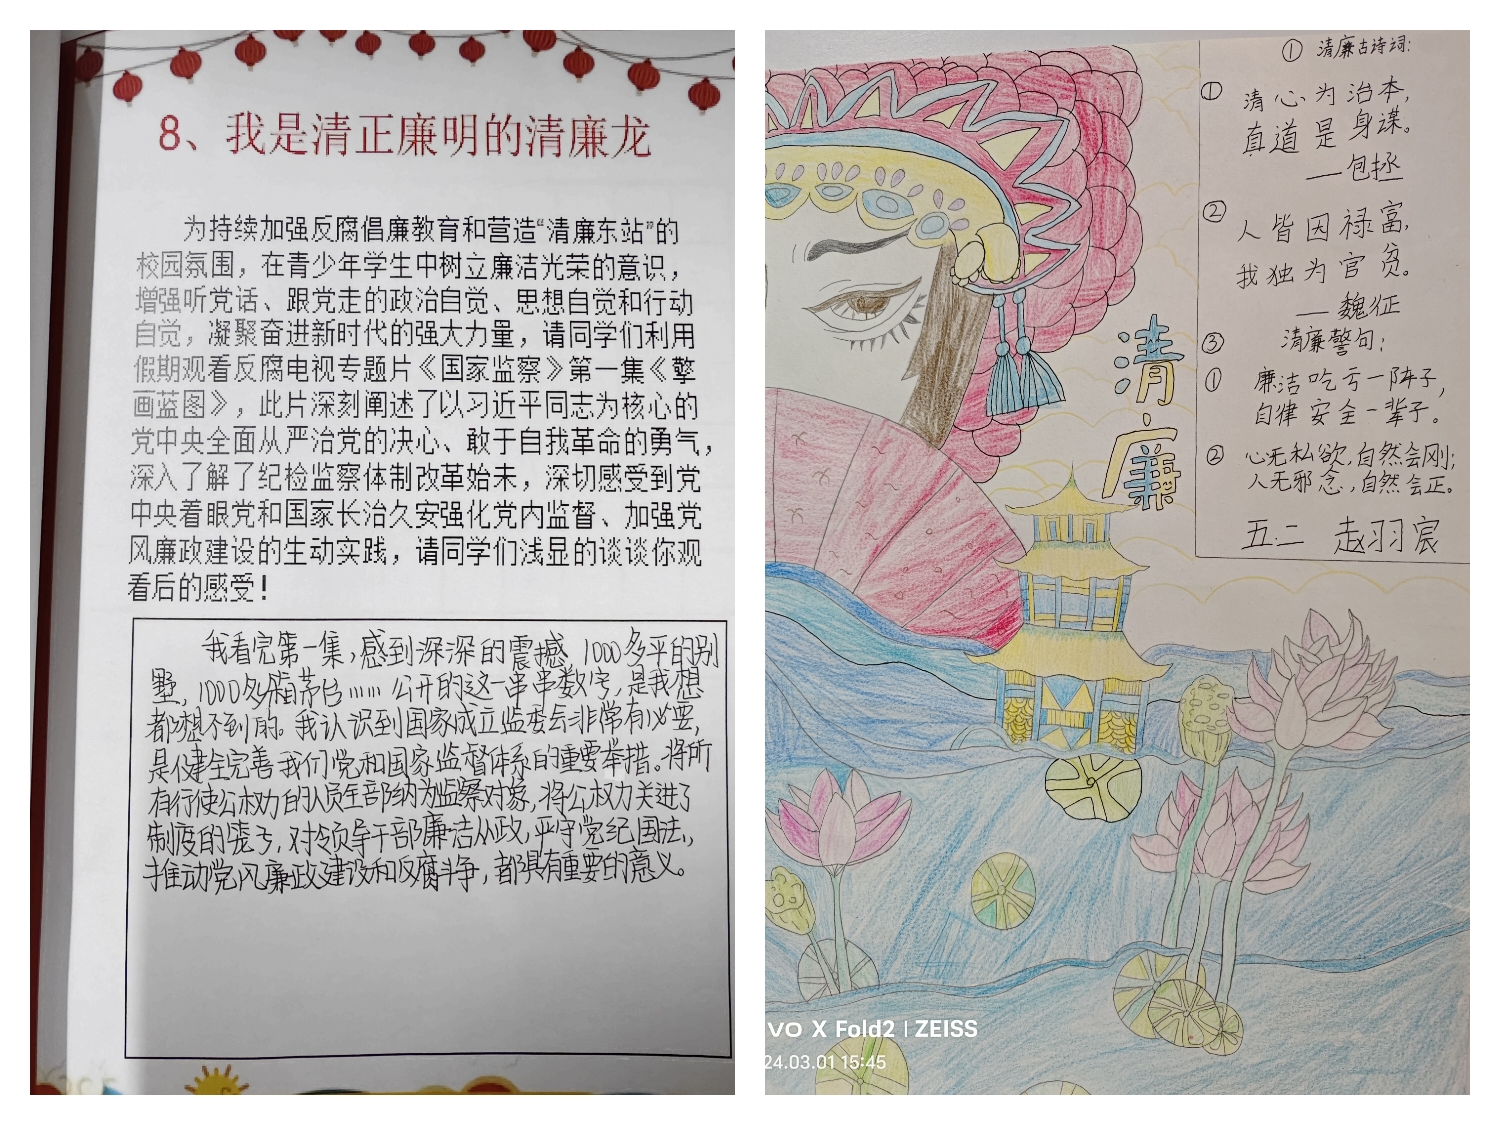 8、我是清正廉明的清廉龙
为持续加强反腐倡廉教育和营造“清廉东站”的
校园氛围，在青少年学生中树立廉洁光荣的意识，
增强听党话、跟党走的政治自觉、思想自觉和行动
自觉，凝聚奋进新时代的强大力量，请同学们利用
假期观看反腐电视专题片《国家监察》第一集《擘
画蓝图》，此片深刻阐述了以习近平同志为核心的
党中央全面从严治党的决心、敢于自我革命的勇气，
深入了解了纪检监察体制改革始末，深切感受到党
中央着眼党和国家长治久安强化党内监督、加强党
风廉政建设的生动实践，请同学们浅显的谈谈你观
看后的感受！
我看完第一集，感到深深的震撼，1000多平的别
墅，1000多瓶茅台……公开的这一串串数字，是我想
都想不到的。我认识到国家成立监委会非常有必要，
是健全完善我们党和国家监督体系的重要举措。将所
有行使公权力的人员全部纳为监察对象，将公权力关进了
制度的笼子，对领导干部廉洁从政，严守党纪国法，
于推动党风廉政建设和反腐斗争，都具有重要的意义。
① 清廉古诗词：
① 清心为治本，
真道是身谋。
——包拯
② 人皆因禄富，
我独为官贫。
——魏征
③ 清廉警句：
① 廉洁吃亏一阵子，
自律安全一辈子。
② 心无私欲，自然会刚；
人无邪念，自然会正。
五.二 赵羽宸
清
廉
VO X Fold2 | ZEISS
24.03.01 15:45